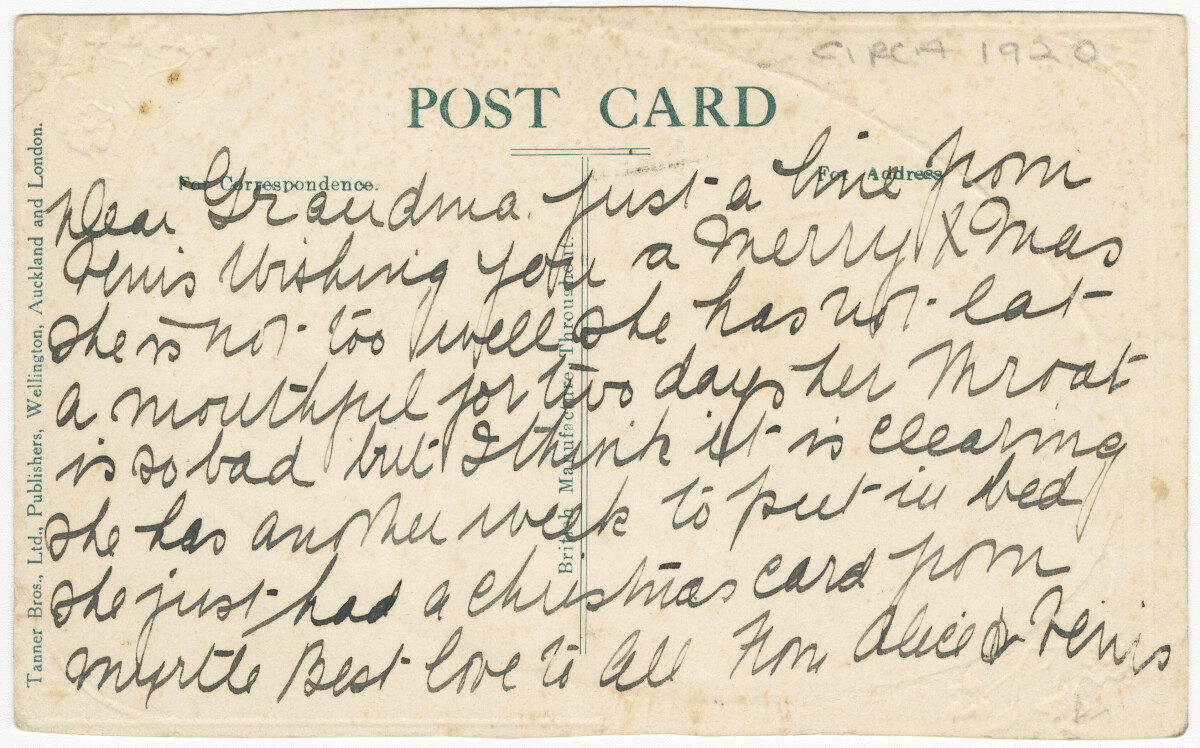 CIRCA 1920
POST CARD
For Correspondence.
For Address
Dear Grandma. Just a line from
Venis Wishing you a Merry XMas
She is not too well She has not eat
a mouthful for two days her throat
is so bad but I think it is clearing
She has another week to put in bed
She just had a christmas card from
Myrtle Best love to all From Alice & Venis
Tanner Bros., Ltd., Publishers, Wellington, Auckland and London.
British Manufacture Throughout.